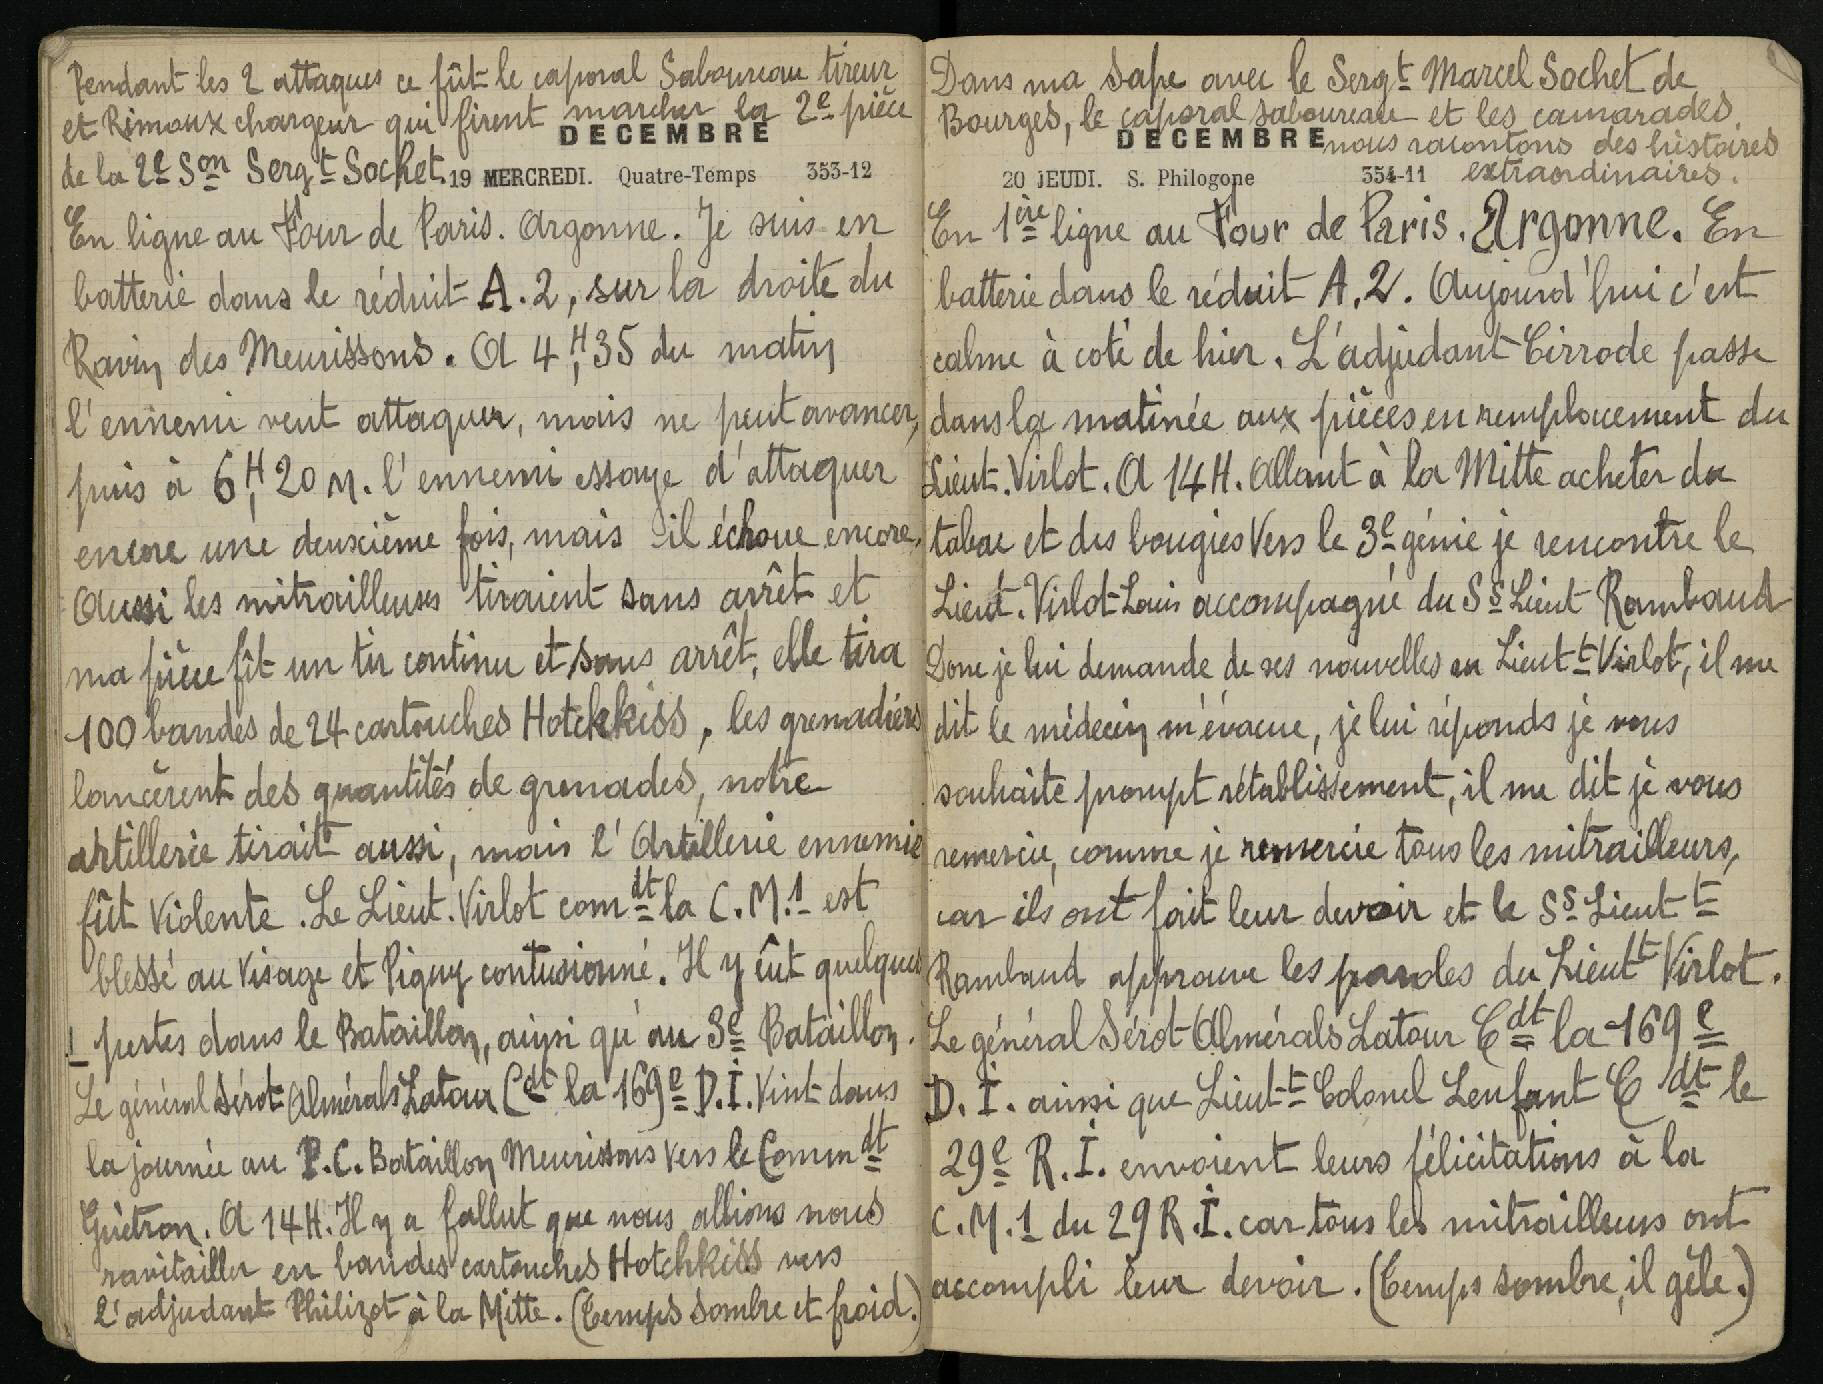 Pendant les 2 attaques ce fût le caporal Saboureau tireur
et Rimoux chargeur qui firent marcher la 2e pièce
DECEMBRE
de la 2e Son Sergt Sochet.
19 MERCREDI. Quatre-Temps 353-12
En ligne au Four de Paris. Argonne. Je suis en
batterie dans le réduit A.2, sur la droite du
Ravin des Meurissons. A 4H,35 du matin
l'ennemi veut attaquer, mais ne peut avancer,
puis à 6H,20 M. l'ennemi essaye d'attaquer
encore une deuxième fois, mais il échoue encore.
Aussi les mitrailleuses tiraient sans arrêt et
ma pièce fît un tir continu et sans arrêt, elle tira
100 bandes de 24 cartouches Hotchkiss, les grenadiers
lancèrent des quantités de grenades, notre
artillerie tirait aussi, mais l'Artillerie ennemie
fût violente. Le Lieut. Virlot comdt la C.M.1 est
blessé au visage et Pigny contusionné. Il y eût quelques
pertes dans le Bataillon, ainsi qu'au 3e Bataillon.
Le général Sérot Almérals Latour Cdt la 169e D.I. vint dans
la journée au P.C. Bataillon Meurissons vers le Commdt
Guétron. A 14H. Il y a fallut que nous allions nous
ravitailler en bandes cartouches Hotchkiss vers
l'adjudant Philizot à la Mitte. (Temps sombre et froid.)
Dans ma sape avec le Sergt Marcel Sochet de
Bourges, le caporal Saboureau et les camarades,
DECEMBRE
nous racontons des histoires
extraordinaires.
20 JEUDI. S. Philogone 354-11
En 1ère ligne au Four de Paris. Argonne. En
batterie dans le réduit A.2. Aujourd'hui c'est
calme à coté de hier. L'adjudant Cirrode passe
dans la matinée aux pièces en remplacement du
Lieut. Virlot. A 14H. Allant à la Mitte acheter du
tabac et des bougies vers le 3e génie je rencontre le
Lieut. Virlot Louis accompagné du Ss Lieut Rambaud
Donc je lui demande de ses nouvelles au Lieutt Virlot, il me
dit le médecin m'évacue, je lui réponds je vous
souhaite prompt rétablissement, il me dit je vous
remercie, comme je remercie tous les mitrailleurs,
car ils ont fait leur devoir et le Ss Lieutt
Rambaud approuve les paroles du Lieutt Virlot.
Le général Sérot Almérals Latour Cdt la 169e
D.I. ainsi que Lieutt Colonel Lenfant Cdt le
29e R.I. envoient leurs félicitations à la
C.M.1 du 29 R.I. car tous les mitrailleurs ont
accompli leur devoir. (Temps sombre, il gèle.)